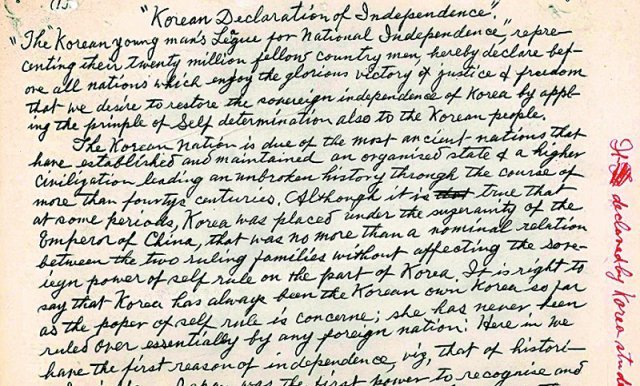 (1).
"Korean Declaration of Independence".
"The "Korean young man's League for National Independence," repre-
centing their twenty million fellow country men, hereby declare bef-
ore all nations which enjoy the glorious victory of justice & freedom
that we desire to restore the sovereign independence of Korea by appl-
ing the prinple of Self determination also to the Korean people.
The Korean Nation is due of the most ancient nations that
have established and maintained an organised state & a higher
civilization leading an unbroken history through the course of
more than fourtys centuries. Although it is true that
at some periods, Korea was placed under the sugerainty of the
Emperor of China, that was no more than a nominal relation
between the two ruling families without affecting the sove-
iegn power of self rule on the part of Korea. It is right to
say that Korea has always been the Korean own Korea so far
as the poper of self rule is concerne; she has never been
ruled over essentially by any foreign nation. Here in we
have the first reason of independence viz, that of histori-
was the first power to recognise and
It declared by Korea stud